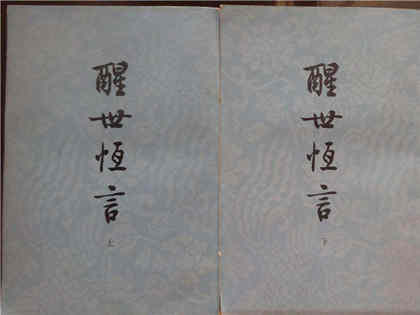 醒世恒言
上
醒世恒言
下